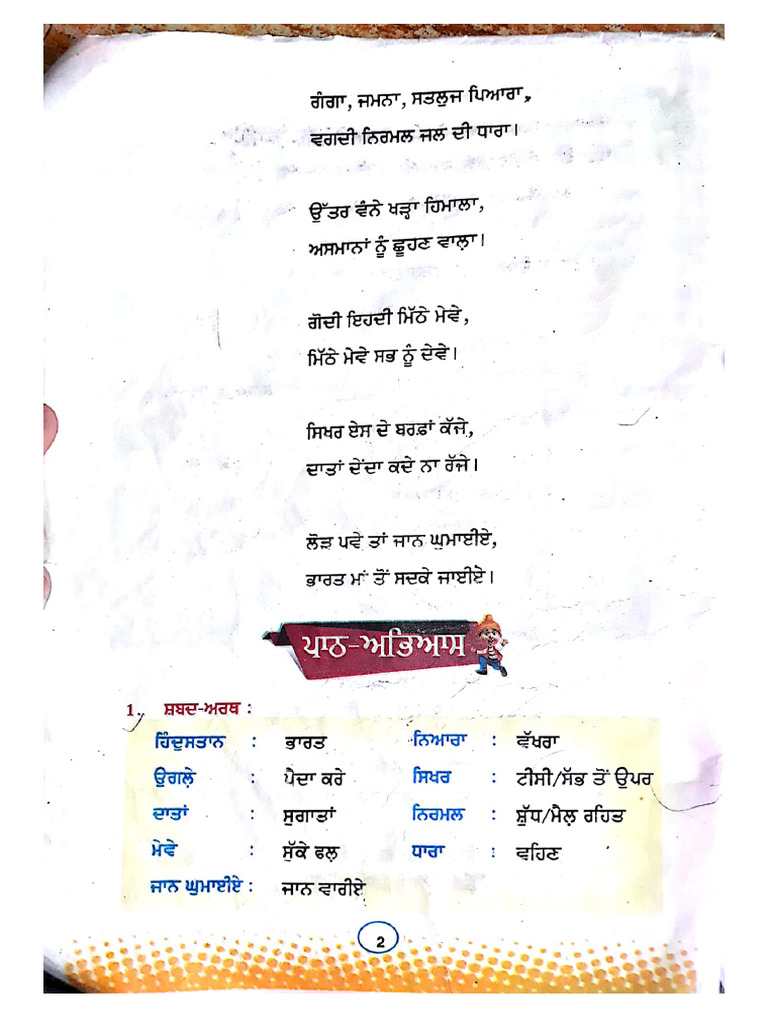 ਗੰਗਾ, ਜਮਨਾ, ਸਤਲੁਜ ਪਿਆਰਾ,
ਵਗਦੀ ਨਿਰਮਲ ਜਲ ਦੀ ਧਾਰਾ।
ਉੱਤਰ ਵੰਨੇ ਖੜ੍ਹਾ ਹਿਮਾਲਾ,
ਅਸਮਾਨਾਂ ਨੂੰ ਛੂਹਣ ਵਾਲ਼ਾ।
ਗੋਦੀ ਇਹਦੀ ਮਿੱਠੇ ਮੇਵੇ,
ਮਿੱਠੇ ਮੇਵੇ ਸਭ ਨੂੰ ਦੇਵੇ।
ਸਿਖਰ ਏਸ ਦੇ ਬਰਫ਼ਾਂ ਕੱਜੇ,
ਦਾਤਾਂ ਦੇਂਦਾ ਕਦੇ ਨਾ ਰੱਜੇ।
ਲੋੜ ਪਵੇ ਤਾਂ ਜਾਨ ਘੁਮਾਈਏ,
ਭਾਰਤ ਮਾਂ ਤੋਂ ਸਦਕੇ ਜਾਈਏ।
ਪਾਠ-ਅਭਿਆਸ
1. ਸ਼ਬਦ-ਅਰਥ :
ਹਿੰਦੁਸਤਾਨ : ਭਾਰਤ ਨਿਆਰਾ : ਵੱਖਰਾ
ਉਗਲ਼ੇ : ਪੈਦਾ ਕਰੇ ਸਿਖਰ : ਟੀਸੀ/ਸੱਭ ਤੋਂ ਉਪਰ
ਦਾਤਾਂ : ਸੁਗਾਤਾਂ ਨਿਰਮਲ : ਸ਼ੁੱਧ/ਮੈਲ਼ ਰਹਿਤ
ਮੇਵੇ : ਸੁੱਕੇ ਫਲ਼ ਧਾਰਾ : ਵਹਿਣ
ਜਾਨ ਘੁਮਾਈਏ : ਜਾਨ ਵਾਰੀਏ
2